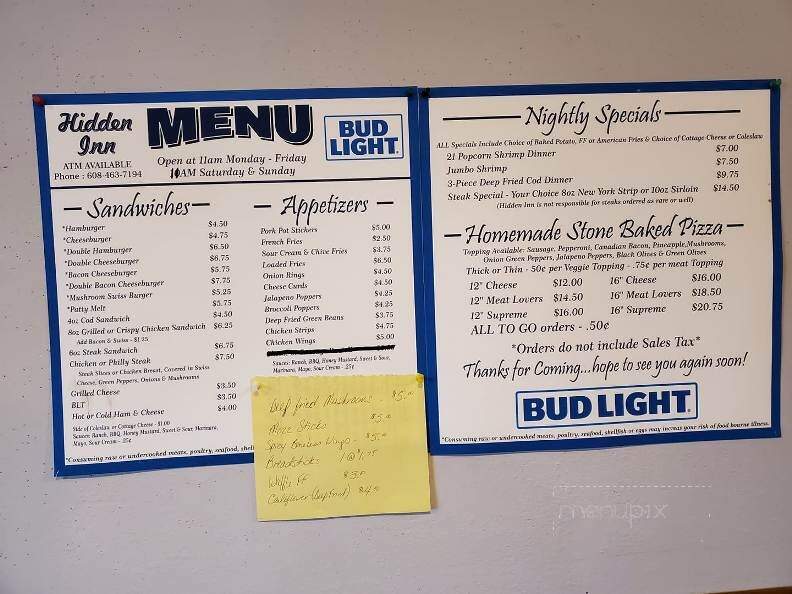 Hidden
Inn
MENU
BUD
LIGHT
ATM AVAILABLE
Phone : 608-463-7194
Open at 11am Monday - Friday
10AM Saturday & Sunday
Sandwiches
*Hamburger $4.50
*Cheeseburger $4.75
*Double Hamburger $6.50
*Double Cheeseburger $6.75
*Bacon Cheeseburger $5.75
*Double Bacon Cheeseburger $7.75
*Mushroom Swiss Burger $5.25
*Patty Melt $5.75
4oz Cod Sandwich $4.50
8oz Grilled or Crispy Chicken Sandwich $6.25
Add Bacon & Swiss - $1.25
6oz Steak Sandwich $6.75
Chicken or Philly Steak $7.50
Steak Slices or Chicken Breast, Covered in Swiss
Cheese, Green Peppers, Onions & Mushrooms
Grilled Cheese $3.50
BLT $3.50
Hot or Cold Ham & Cheese $4.00
Side of Coleslaw or Cottage Cheese - $1.00
Sauces: Ranch, BBQ, Honey Mustard, Sweet & Sour, Marinara,
Mayo, Sour Cream - .25¢
*Consuming raw or undercooked meats, poultry, seafood, shell
Appetizers
Pork Pot Stickers $5.00
French Fries $2.50
Sour Cream & Chive Fries $3.75
Loaded Fries $6.50
Onion Rings $4.50
Cheese Curds $4.50
Jalapeno Poppers $4.25
Broccoli Poppers $4.25
Deep Fried Green Beans $3.75
Chicken Strips $4.75
Chicken Wings $5.00
Sauces: Ranch, BBQ, Honey Mustard, Sweet & Sour,
Marinara, Mayo, Sour Cream - .25¢
fried Mushrooms - $5.00
Moze Sticks $5.00
Spicy Boneless Wings - $5.50
Breadsticks 1@ $1.75
Waffle FF $3.50
Cauliflower $4.50
Nightly Specials
ALL Specials Include Choice of Baked Potato, FF or American Fries & Choice of Cottage Cheese or Coleslaw
21 Popcorn Shrimp Dinner $7.00
Jumbo Shrimp $7.50
3-Piece Deep Fried Cod Dinner $9.75
Steak Special - Your Choice 8oz New York Strip or 10oz Sirloin $14.50
(Hidden Inn is not responsible for steaks ordered as rare or well)
Homemade Stone Baked Pizza
Topping Available: Sausage, Pepperoni, Canadian Bacon, Pineapple, Mushrooms,
Onion Green Peppers, Jalapeno Peppers, Black Olives & Green Olives
Thick or Thin - 50¢ per Veggie Topping - .75¢ per meat Topping
12" Cheese $12.00 16" Cheese $16.00
12" Meat Lovers $14.50 16" Meat Lovers $18.50
12" Supreme $16.00 16" Supreme $20.75
ALL TO GO orders - .50¢
*Orders do not include Sales Tax*
Thanks for Coming...hope to see you again soon!
BUD LIGHT
*Consuming raw or undercooked meats, poultry, seafood, shellfish or eggs may increase your risk of food bourne illness.
menupix